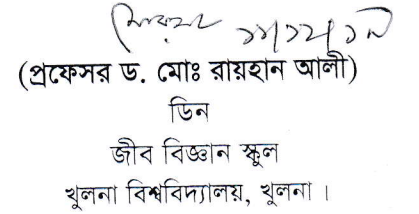 (প্রফেসর ড. মোঃ রায়হান আলী)
ডিন
জীব বিজ্ঞান স্কুল
খুলনা বিশ্ববিদ্যালয়, খুলনা ।